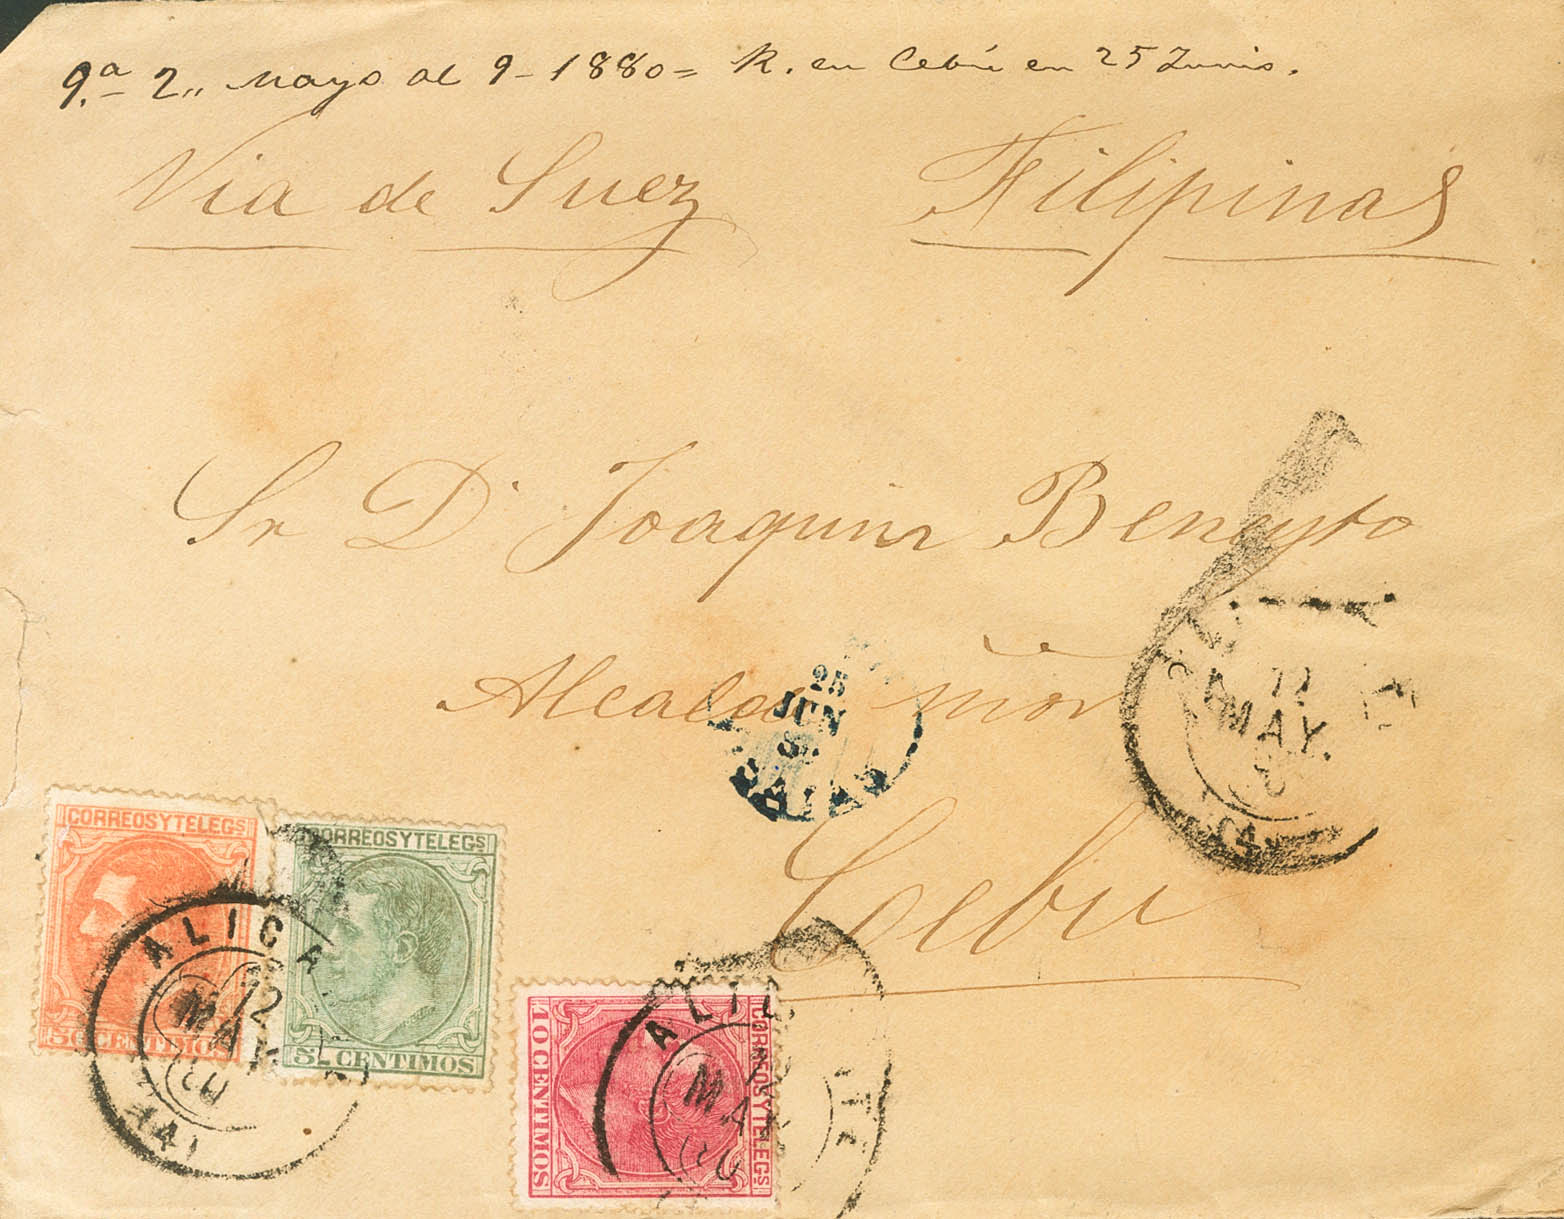 9.ª 2,, Mayo al 9-1880= R. en Cebú en 25 Junio.
Via de Suez Filipinas
Sr D. Joaquin Beneyto
Alcalde mor
Cebu
25
JUN
ALICANTE
12
MAY.
(4)
CORREOS Y TELEGS
50 CENTIMOS
CORREOS Y TELEGS
5 CENTIMOS
ALICA
12
MAY
80
(4)
CORREOS Y TELEGS
10 CENTIMOS
ALIC TE
MAY
80